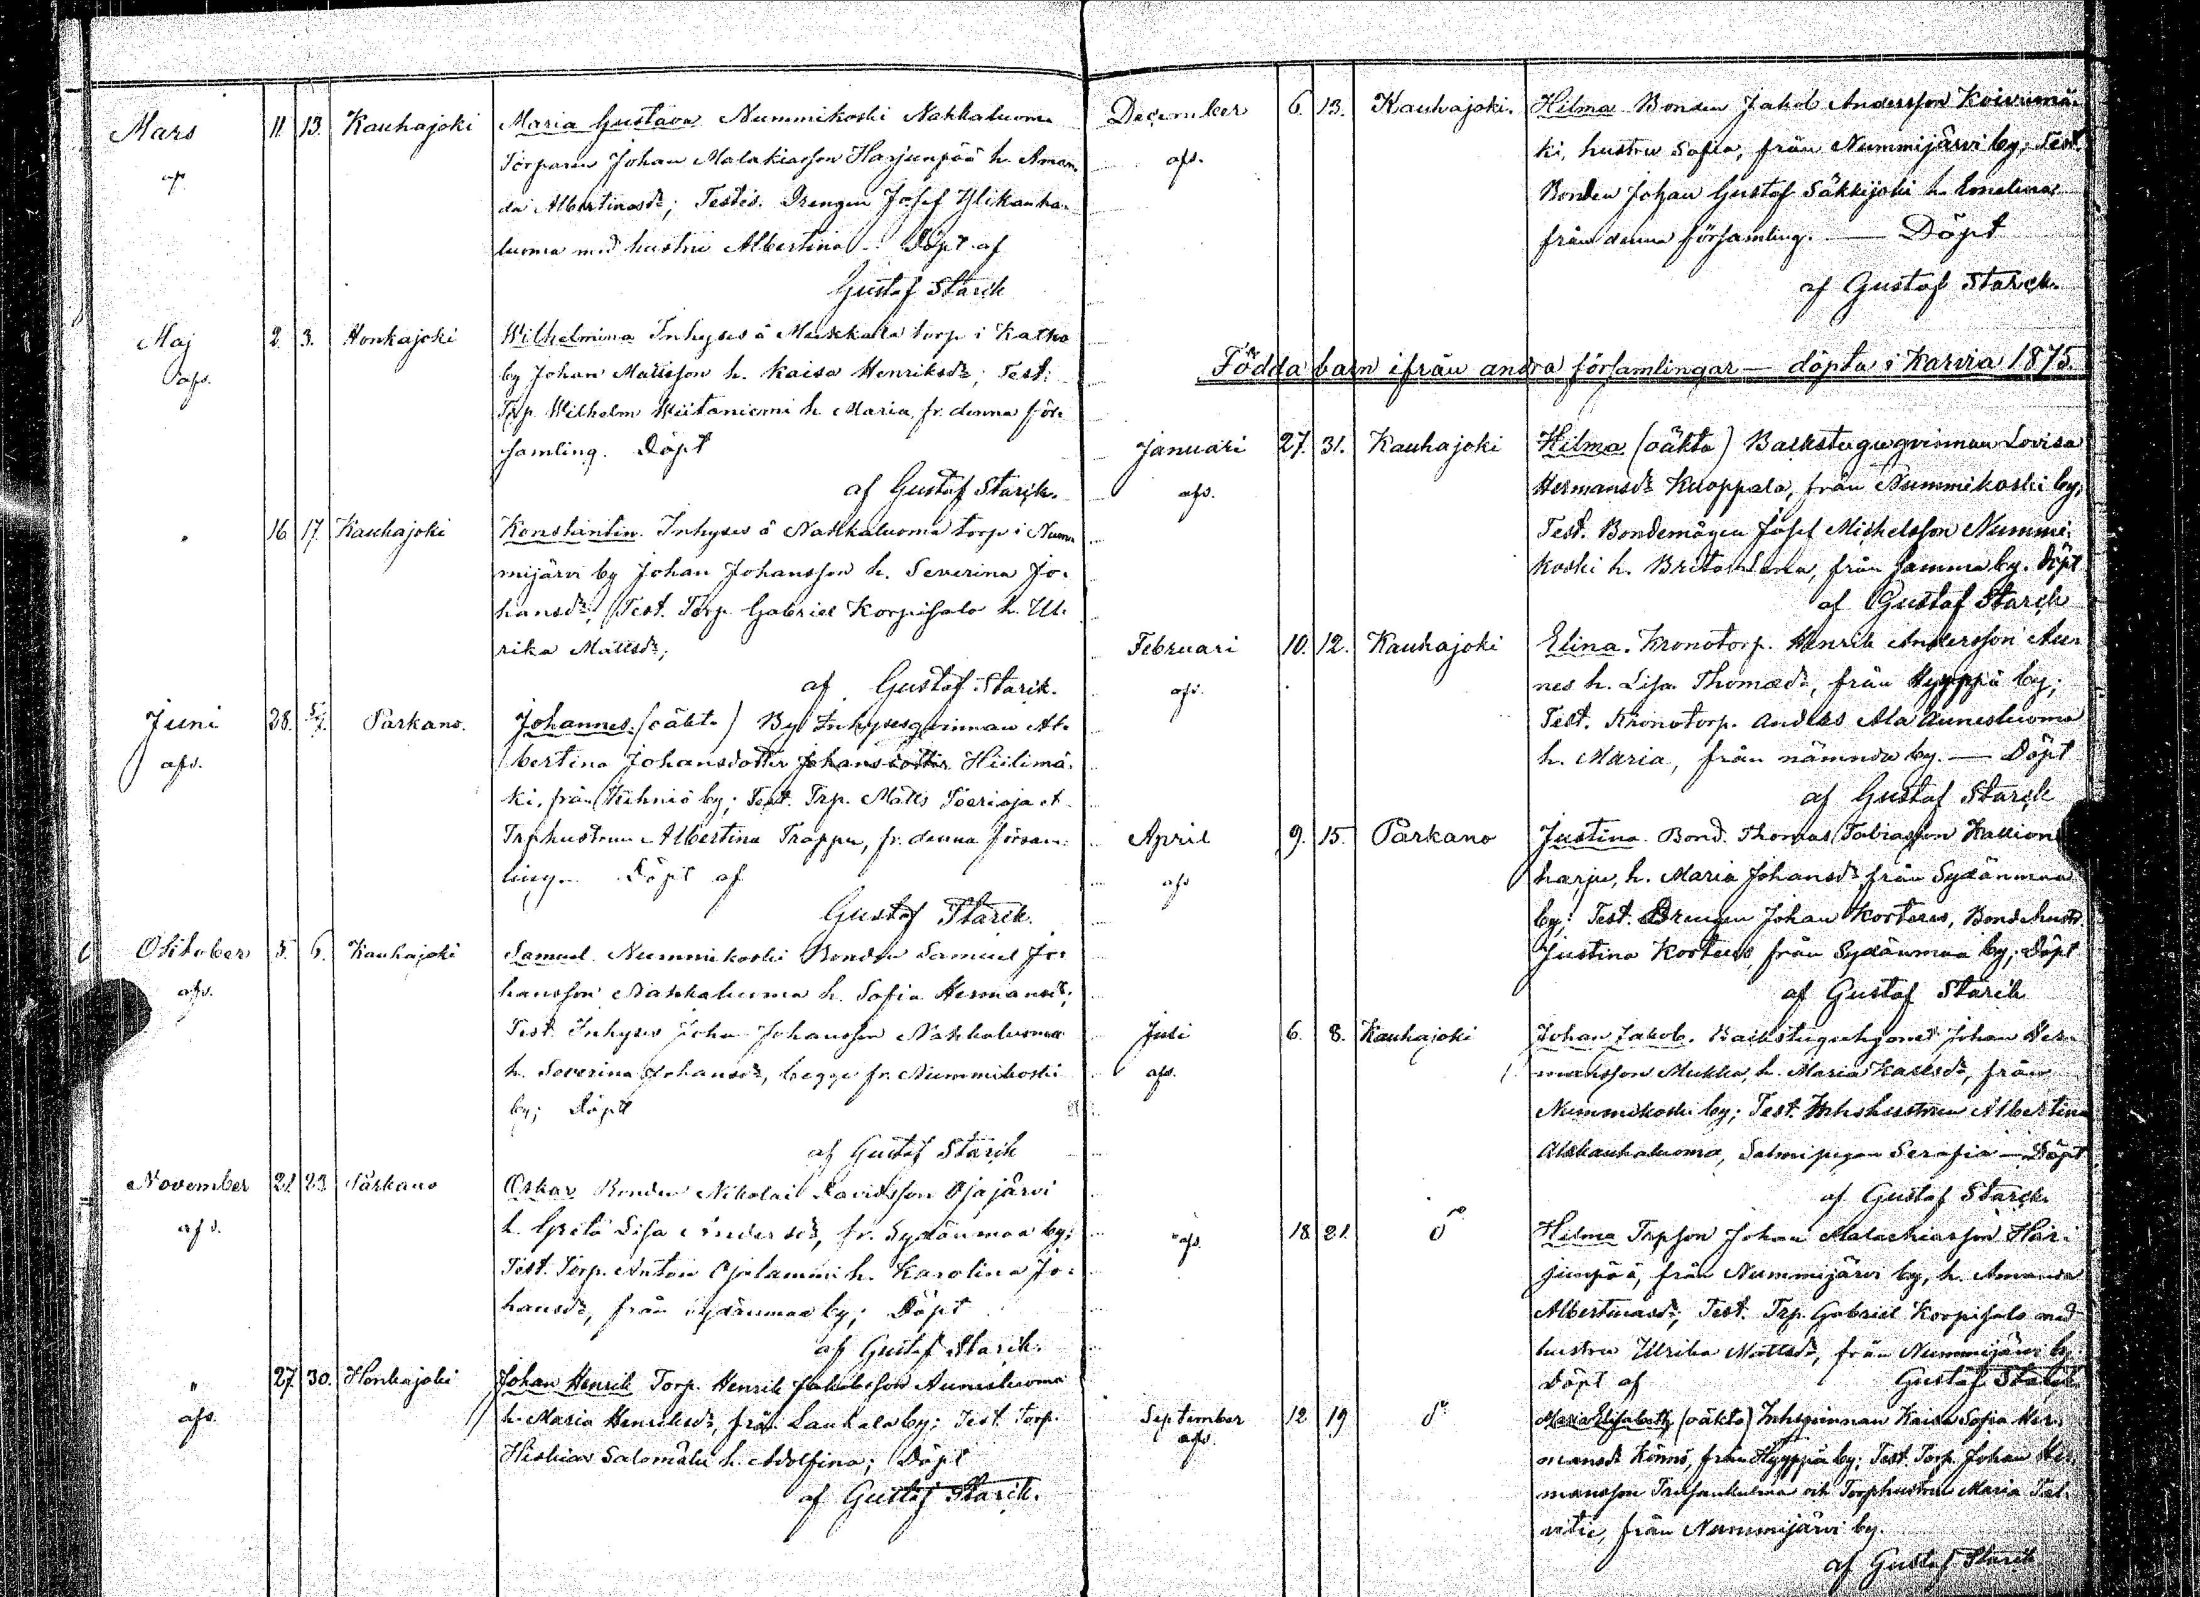 Mars 11. 13. Kauhajoki Maria Gustava Nummikoski Nakkaluoma
afs. Torparen Johan Malakiasson Harjunpää h. Aman-
da Albertinasdr; Testes. Drengen Josef Ylikauha-
luoma med hustru Albertina. Döpt af
Gustaf Starck
Maj 2. 3. Honkajoki Wilhelmina Inhyses å Markkala torp i Katko
afs. by Johan Mattsson h. Kaisa Henriksdr; Test:
Trp. Wilhelm Wiitaniemi h. Maria, fr. denna för-
samling. Döpt
af Gustaf Starck.
" 16 17. Kauhajoki Konstantin. Inhyses å Nakkaluoma torp i Num-
mijärvi by Johan Johansson h. Severina Jo-
hansdr; Test. Torp. Gabriel Korpisalo h. Ul-
rika Mattsdr;
af Gustaf Starck.
Juni 28. 5/7. Parkano. Johannes. (oäkta) By Inhysesqvinnan Al-
afs. bertina Johansdotter Johansdotter Hiilimä-
ki, från Kihniö by; Test. Trp. Matts et
Trphustrun Albertina Trappu, fr. denna försam-
ling. Döpt af
Gustaf Starck.
Oktober 5. 6. Kauhajoki Samuel. Nummikoski Bonden Samuel Jo-
afs. hansson Nakkaluoma h. Sofia Hermansdr;
Test. Inhyses Johan Johansson Nakkaluoma
h. Severina Johansdr, begge fr. Nummikoski
by; Döpt
af Gustaf Starck
November 21. 23. Parkano Oskar Bonden Nikolai Davidsson Ojajärvi
afs. h. Greta Lisa Andersdr, fr. Sydänmaa by;
Test. Torp. Anton Ojalammi h. Karolina Jo-
hansdr, från Sydänmaa by; Döpt
af Gustaf Starck.
" 27. 30. Honkajoki Johan Henrik Torp. Henrik Jakobsson Aunesluoma
afs. h. Maria Henriksdr, från Lauhala by; Test. Torp.
Hiskias Salomäki h. Adolfina; Döpt
af Gustaf Starck.
December 6. 13. Kauhajoki. Hilma Bonden Jakob Andersson Koivumä-
afs. ki, hustru Sofia, från Nummijärvi by; Test.
Bonden Johan Gustaf Säkkijoki h. Emelina
från denna församling. — Döpt
af Gustaf Starck.
Födda barn ifrån andra församlingar — döpta i Karvia 1875.
Januari 27. 31. Kauhajoki Hilma (oäkta) Backstuguqvinnan Lovisa
afs. Hermansdr Kuoppala, från Nummikoski by;
Test. Bondemågen Josef Michelsson Nummi-
koski h. Brita Lena, från samma by. Döpt
af Gustaf Starck
Februari 10. 12. Kauhajoki Elina. Kronotorp. Henrik Andersson Au-
afs. nes h. Lisa Thomædr, från Hyyppä by;
Test. Kronotorp. Anders Ala Aunesluoma
h. Maria, från nämnda by. — Döpt
af Gustaf Starck
April 9. 15. Parkano Justina. Bond. Thomas Tobiasson Kallion-
afs harju, h. Maria Johansdr från Sydänmaa
by; Test. Drengen Johan Korteus, Bondehustr.
Justina Korteus, från Sydänmaa by; Döpt
af Gustaf Starck
Juli 6. 8. Kauhajoki Johan Jakob. Backstuguhjonet Johan Her-
afs. mansson Mukka, h. Maria Karlsdr, från
Nummikoski by; Test. Inhshustrun Albertina
Alakauhaluoma, Salmi pigan Serafia — Döpt
af Gustaf Starck.
afs. 18 21. do Hilma Trpson Johan Malachiasson Har-
junpää, från Nummijärvi by, h. Amanda
Albertinasdr; Test. Trp. Gabriel Korpisalo med
hustru Ulrika Mattsdr, från Nummijärvi by.
Döpt af Gustaf Starck
September 12 19 do Maria Elisabeth (oäkta) Inhsqvinnan Kaisa Sofia Her-
afs. mansdr Könnö, från Hyyppä by; Test. Torp. Johan Her-
mansson och Torphustrun Maria Tal-
vitie, från Nummijärvi by.
af Gustaf Starck